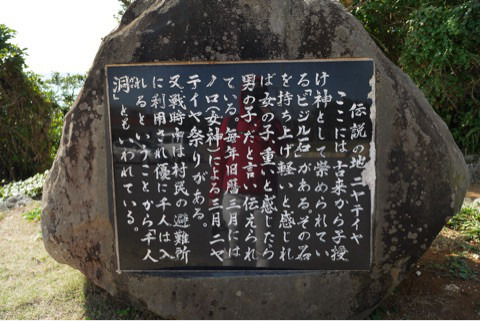 伝説の地ニヤテイヤ
ここには古来から子授
け神として崇められてい
る「ビジル石」がある。その石
を持ち上げ軽いと感じれ
ば女の子、重いと感じたら
男の子、だと言い伝えられ
ている。毎年旧暦三月には
ノロ(女神)による三月ニヤ
テイヤ祭りがある。
又戦時中は村民の避難所
に利用され優に千人は入
れるということから「千人
洞」といわれている。